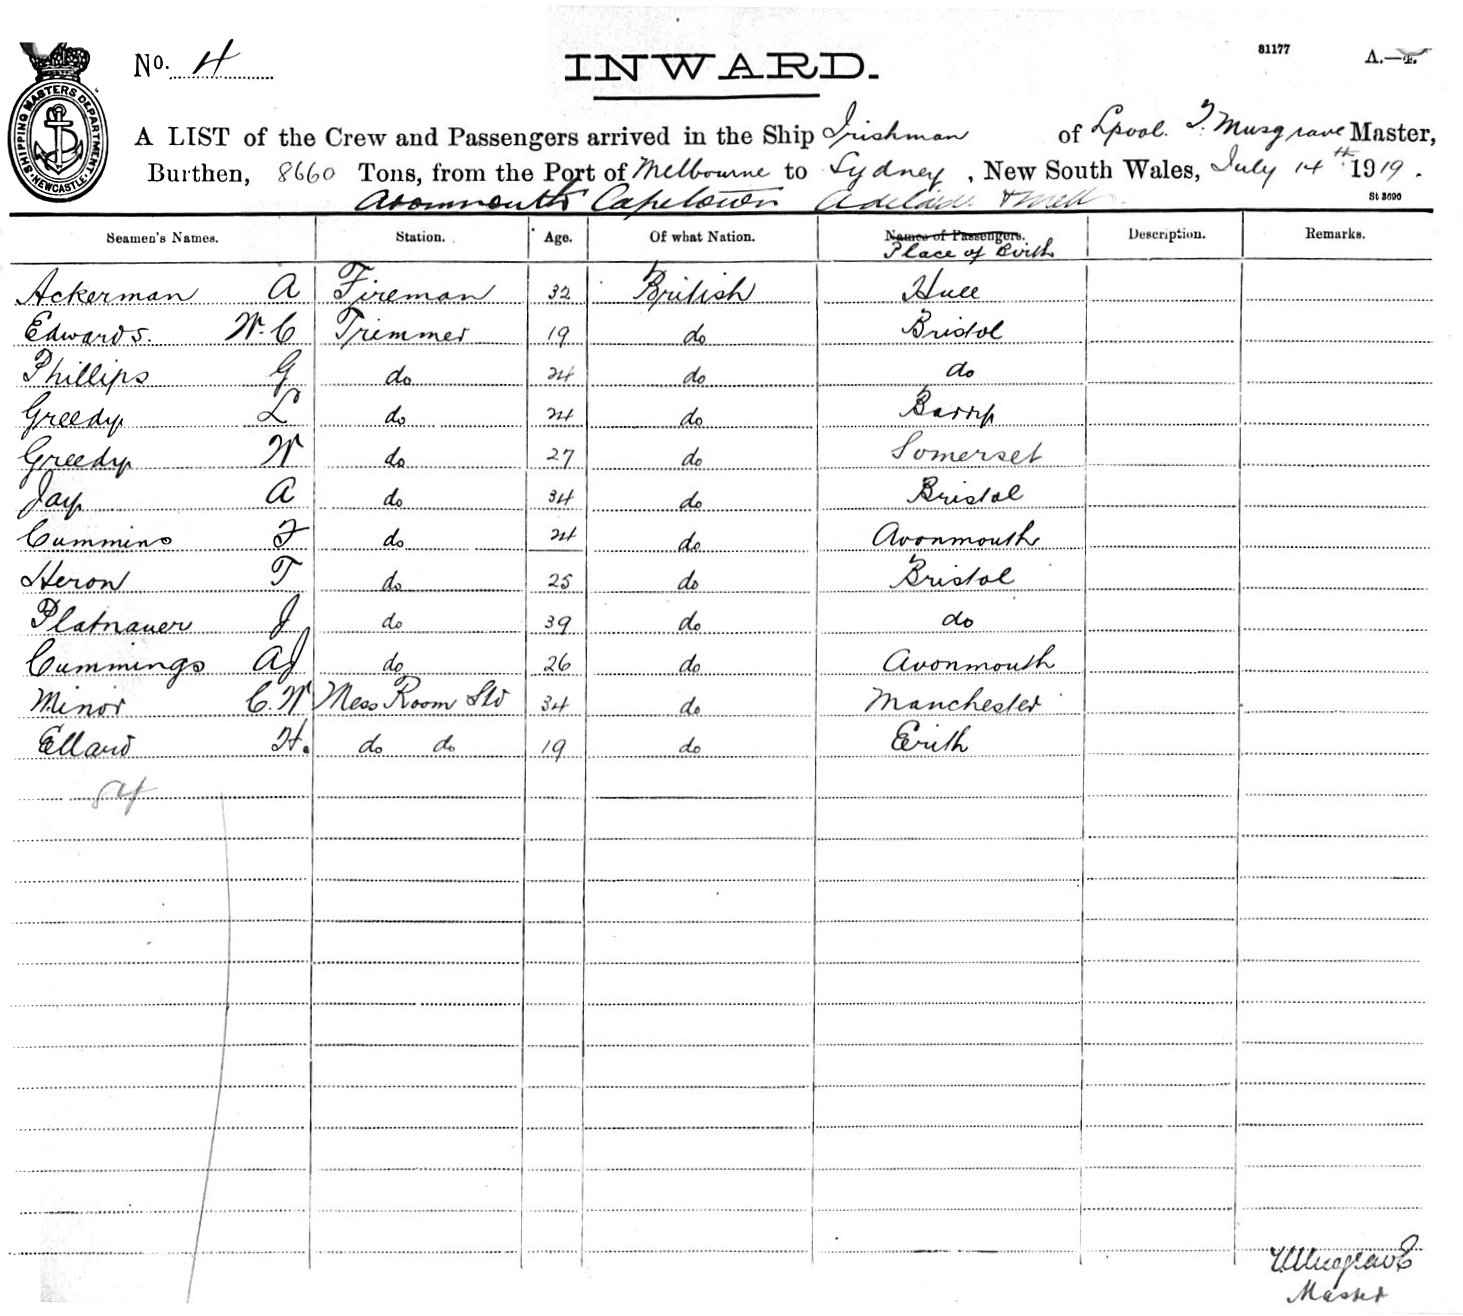 No. 4
INWARD.
81177
A.—4.
SHIPPING MASTERS DEPARTMENT NEWCASTLE
A LIST of the Crew and Passengers arrived in the Ship Irishman of Lpool. T. Musgrave Master,
Burthen, 8660 Tons, from the Port of Melbourne to Sydney, New South Wales, July 14th 1919.
Avonmouth Capetown Adelaide & Melb
St 3690
Seamen's Names. Station. Age. Of what Nation. Names of Passengers. Description. Remarks.
Place of Birth
Ackerman A Fireman 32 British Hull
Edwards. W. C Trimmer 19 do Bristol
Phillips G do 24 do do
Greedy L do 24 do Barry
Greedy W do 27 do Somerset
Jay A do 34 do Bristol
Cummins F do 24 do Avonmouth
Heron T do 25 do Bristol
Platnauer J do 39 do do
Cummings AJ do 26 do Avonmouth
Minor C. W Mess Room Std 34 do Manchester
Ellard H. do do 19 do Erith
T Musgrave
Master